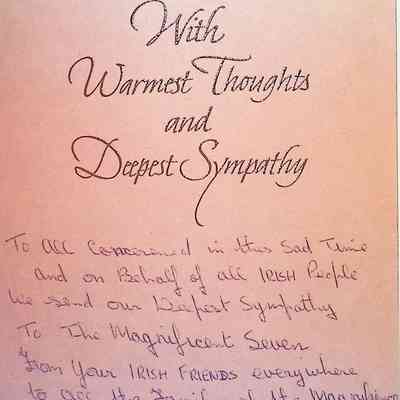 With
Warmest Thoughts
and
Deepest Sympathy
To All Concerened in this Sad Time
and on Behalf of all IRISH People
We send our Deepest Sympathy
To The Magnificent Seven
From Your IRISH FRIENDS everywhere
to all the of the Magnificen